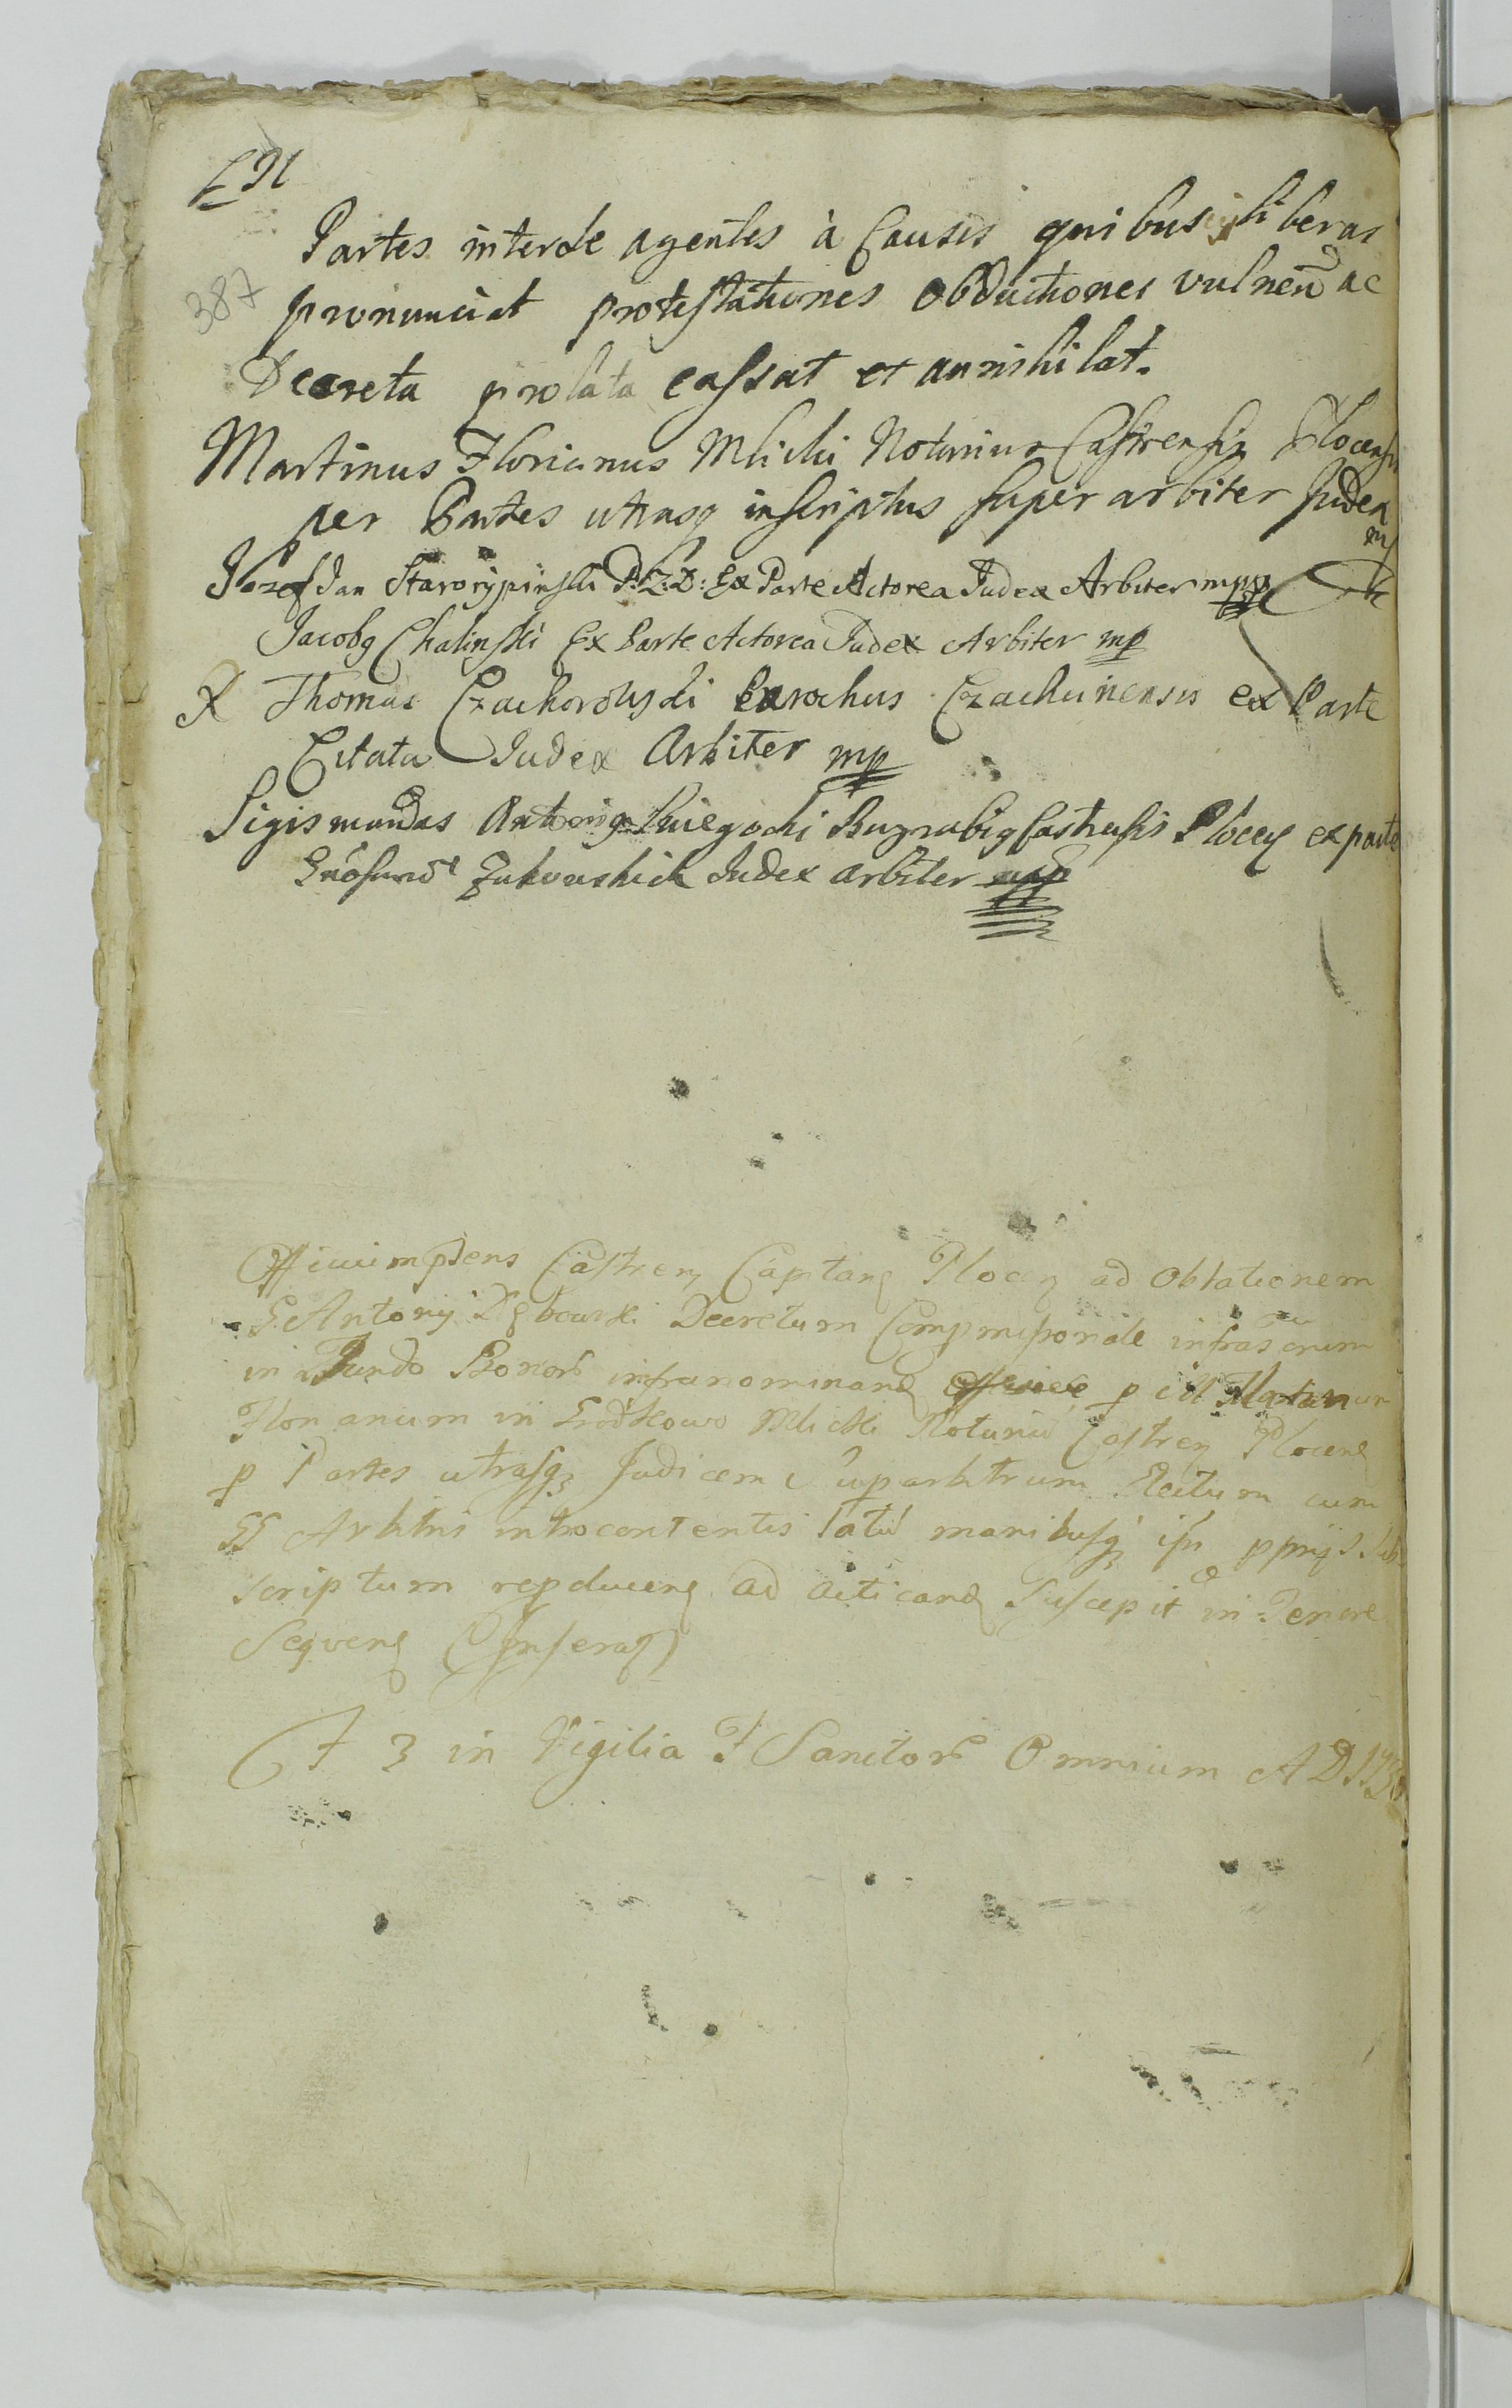 387
Partes inter se agentes à Causis quibusvis liberas
pronunciat protestationes obductiones vulneru ac
Decreta prolata cassat et annihilat.
Martinus Florianus Mlicki Notarius Castrensis Plocensis
per Partes utrasq inscriptus super arbiter Judex
mp
Jozef Jan Starorypinski P: Z: D: Ex Parte Actorea Judex Arbiter mpp
Jacobq Chalinski Ex Parte Actorea Judex Arbiter mp
Thomas Czachorowski Parochus Czachcinensis ex Parte
Citata Judex Arbiter mp
Sigismundus Antoniq Sniegocki Burgrabiq Castrensis Plocen ex parte
Judex arbiter mpp
Officium psens Castren Capitan Plocen ad Oblationem
G Antonij Dębowski Decretum Compromissoriale infrascrium
in Fundo Bonor infranominand p M Martinum
Florianum in Srodkowo Mlicki Notariu Castren Plocens
p Partes utrasq Judicem Suparbitrum Electum cum
GG Arbitris introcontentis latu manibusq ipsor pprijs sub
scriptum repducens ad acticand Suscepit in Tenore
Seqvens (Inserat)
F 3 in Vigilia F Sanctor Omnium A D 1730